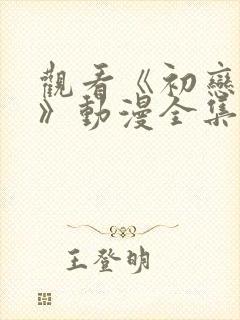 觀看《初戀
》動漫全集
王登明